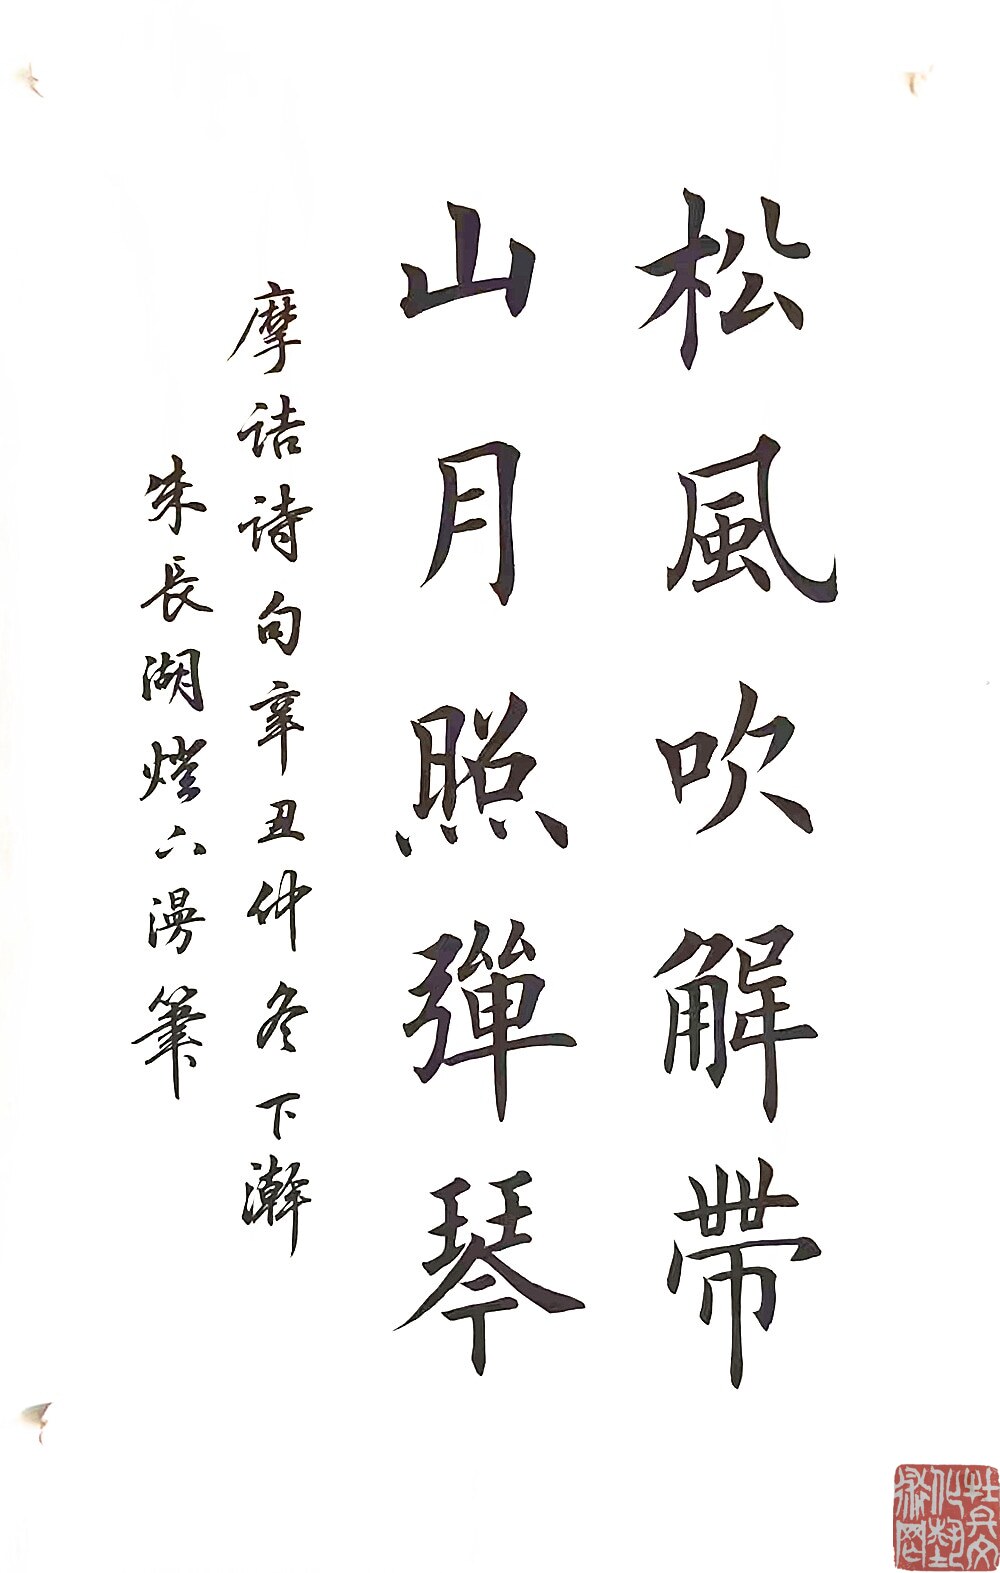 松風吹解帶
山月照彈琴
摩詰詩句辛丑仲冬下澣
朱長湖燈下漫筆